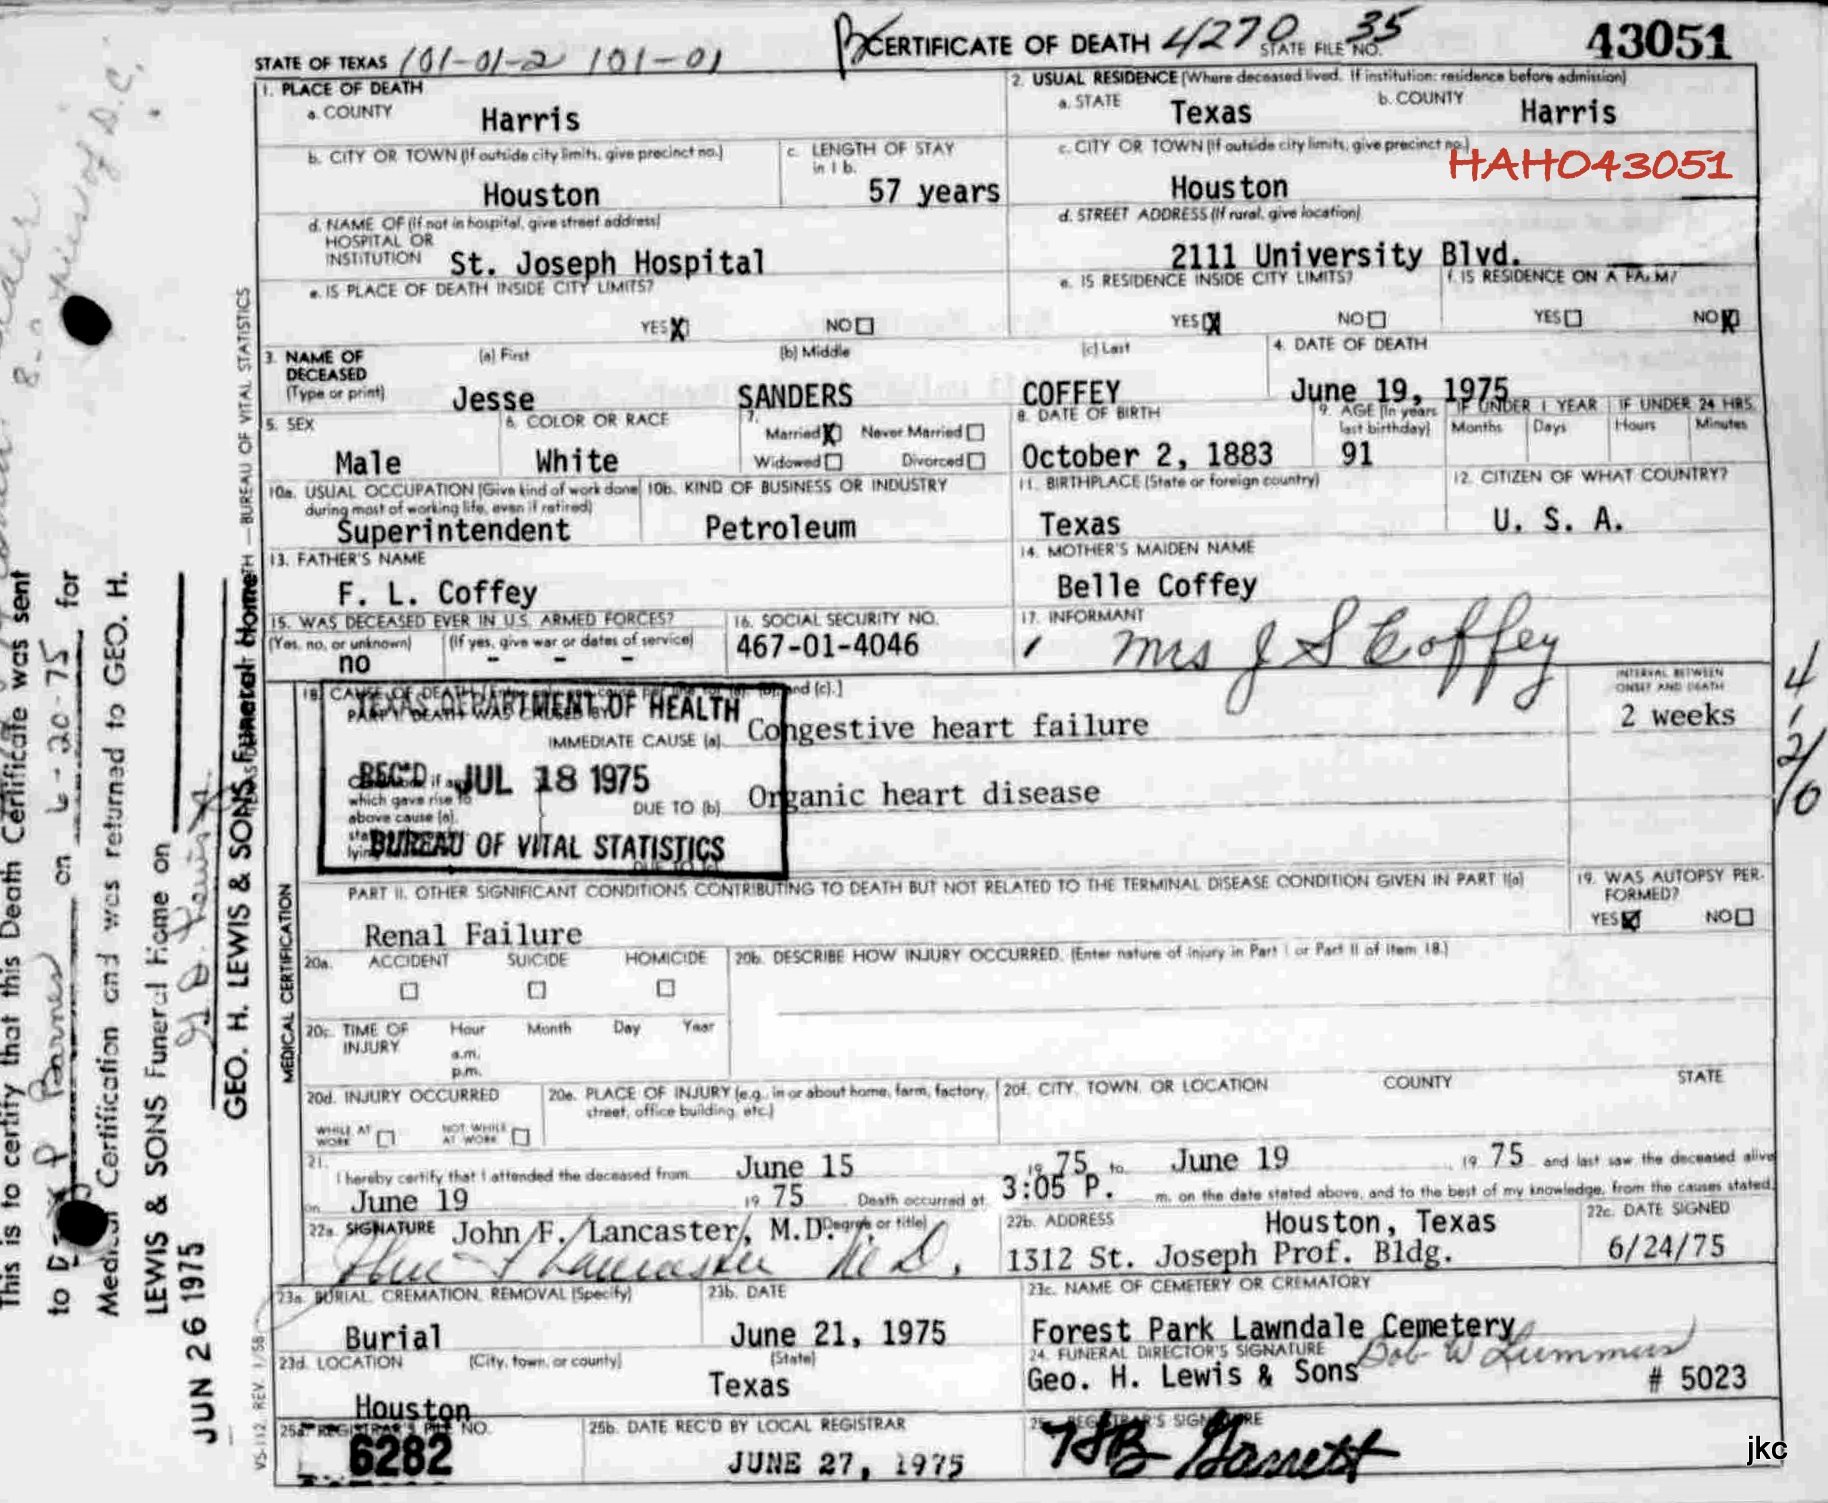 CERTIFICATE OF DEATH 4270 35 43051
STATE OF TEXAS 101-01-2 101-01 STATE FILE NO.
1. PLACE OF DEATH
a. COUNTY Harris
2. USUAL RESIDENCE (Where deceased lived. If institution: residence before admission)
a. STATE Texas b. COUNTY Harris
b. CITY OR TOWN (If outside city limits, give precinct no.) Houston
c. LENGTH OF STAY in 1 b. 57 years
c. CITY OR TOWN (If outside city limits, give precinct no.) Houston
HAHO43051
d. NAME OF (If not in hospital, give street address)
HOSPITAL OR
INSTITUTION St. Joseph Hospital
d. STREET ADDRESS (If rural, give location)
2111 University Blvd.
e. IS PLACE OF DEATH INSIDE CITY LIMITS?
YES X NO
e. IS RESIDENCE INSIDE CITY LIMITS?
YES X NO
f. IS RESIDENCE ON A FARM?
YES NO X
3. NAME OF DECEASED (Type or print)
(a) First (b) Middle (c) Last
Jesse SANDERS COFFEY
4. DATE OF DEATH
June 19, 1975
5. SEX
Male
6. COLOR OR RACE
White
7.
Married X Never Married
Widowed Divorced
8. DATE OF BIRTH
October 2, 1883
9. AGE (In years last birthday)
91
IF UNDER 1 YEAR IF UNDER 24 HRS.
Months Days Hours Minutes
10a. USUAL OCCUPATION (Give kind of work done during most of working life, even if retired)
Superintendent
10b. KIND OF BUSINESS OR INDUSTRY
Petroleum
11. BIRTHPLACE (State or foreign country)
Texas
12. CITIZEN OF WHAT COUNTRY?
U. S. A.
13. FATHER'S NAME
F. L. Coffey
14. MOTHER'S MAIDEN NAME
Belle Coffey
15. WAS DECEASED EVER IN U.S. ARMED FORCES?
(Yes, no, or unknown) (If yes, give war or dates of service)
no - - -
16. SOCIAL SECURITY NO.
467-01-4046
17. INFORMANT
Mrs J S Coffey
18. CAUSE OF DEATH
and (c).]
PART I. DEATH WAS CAUSED BY:
INTERVAL BETWEEN ONSET AND DEATH
2 weeks
IMMEDIATE CAUSE (a) Congestive heart failure
which gave rise to
above cause (a),
DUE TO (b) Organic heart disease
TEXAS DEPARTMENT OF HEALTH
REC'D JUL 18 1975
BUREAU OF VITAL STATISTICS
PART II. OTHER SIGNIFICANT CONDITIONS CONTRIBUTING TO DEATH BUT NOT RELATED TO THE TERMINAL DISEASE CONDITION GIVEN IN PART I(a)
Renal Failure
19. WAS AUTOPSY PER-
FORMED?
YES X NO
20a. ACCIDENT SUICIDE HOMICIDE
20b. DESCRIBE HOW INJURY OCCURRED. (Enter nature of injury in Part I or Part II of Item 18.)
20c. TIME OF INJURY
Hour Month Day Year
a.m.
p.m.
20d. INJURY OCCURRED
WHILE AT WORK NOT WHILE AT WORK
20e. PLACE OF INJURY (e.g., in or about home, farm, factory, street, office building, etc.)
20f. CITY, TOWN, OR LOCATION COUNTY STATE
21.
I hereby certify that I attended the deceased from June 15 19 75 to June 19 19 75 and last saw the deceased alive
on June 19 19 75 Death occurred at 3:05 P. m. on the date stated above, and to the best of my knowledge, from the causes stated.
22a. SIGNATURE John F. Lancaster, M.D. (Degree or title)
John F Lancaster M D.
22b. ADDRESS Houston, Texas
1312 St. Joseph Prof. Bldg.
22c. DATE SIGNED
6/24/75
23a. BURIAL, CREMATION, REMOVAL (Specify)
Burial
23b. DATE
June 21, 1975
23c. NAME OF CEMETERY OR CREMATORY
Forest Park Lawndale Cemetery
23d. LOCATION (City, town, or county) (State)
Houston Texas
24. FUNERAL DIRECTOR'S SIGNATURE Bob W Lummus
Geo. H. Lewis & Sons # 5023
25a. REGISTRAR'S FILE NO.
6282
25b. DATE REC'D BY LOCAL REGISTRAR
JUNE 27, 1975
25c. REGISTRAR'S SIGNATURE
Garrett
jkc
VS-112 REV. 1/58
MEDICAL CERTIFICATION
BUREAU OF VITAL STATISTICS
This is to certify that this Death Certificate was sent
to P Barnes on 6-20-75 for
Medical Certification and was returned to GEO. H.
LEWIS & SONS Funeral Home on
JUN 26 1975
GEO. H. LEWIS & SONS Funeral Home